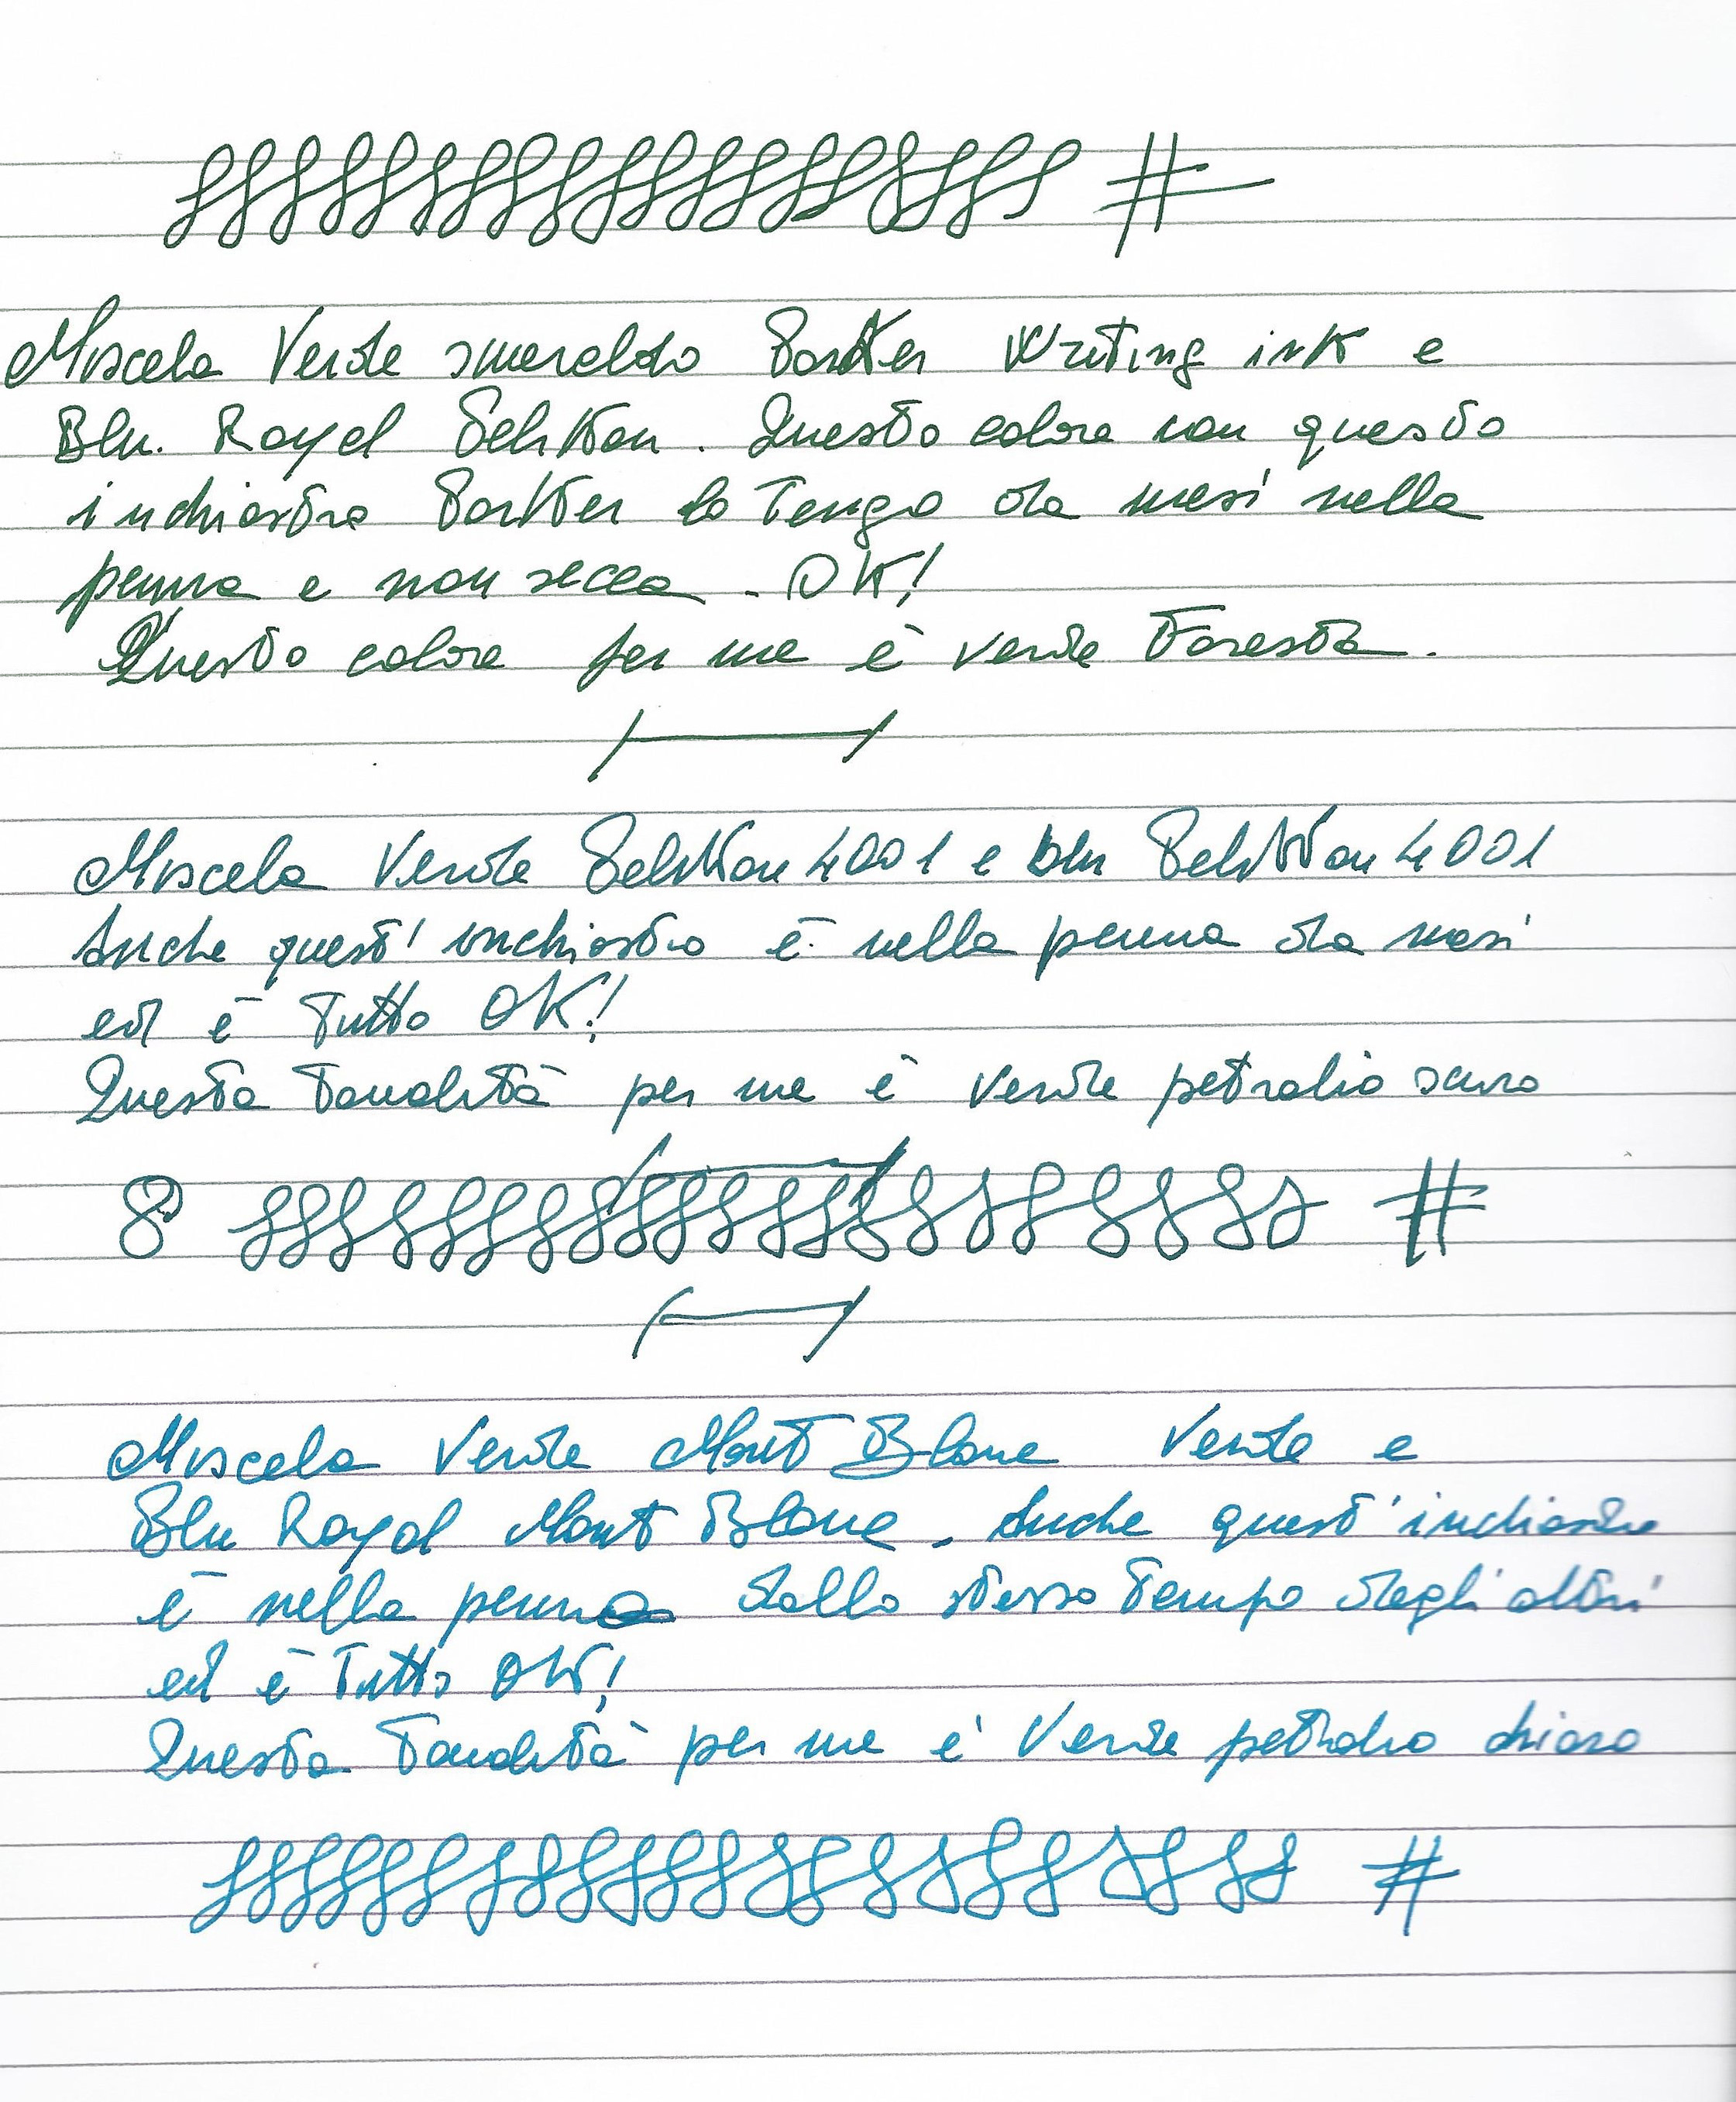 #
Miscela Verde smeraldo Parker Writing ink e
Blu. Royal Pelikan. Questo colore con questo
inchiostro Parker lo Tengo da mesi nella
penna e non secca. OK!
Questo colore per me è verde Foresta.
Miscela Verde Pelikan 4001 e blu Pelikan 4001
Anche quest'inchiostro è nella penna da mesi
ed è Tutto OK!
Questa Tonalità per me è verde petrolio scuro
8 #
Miscela Verde Mont Blanc Verde e
Blu Royal Mont Blanc. Anche quest'inchiostro
è nella penna dallo stesso Tempo degli altri
ed è Tutto OK!
Questa Tonalità per me è Verde petrolio chiaro
#